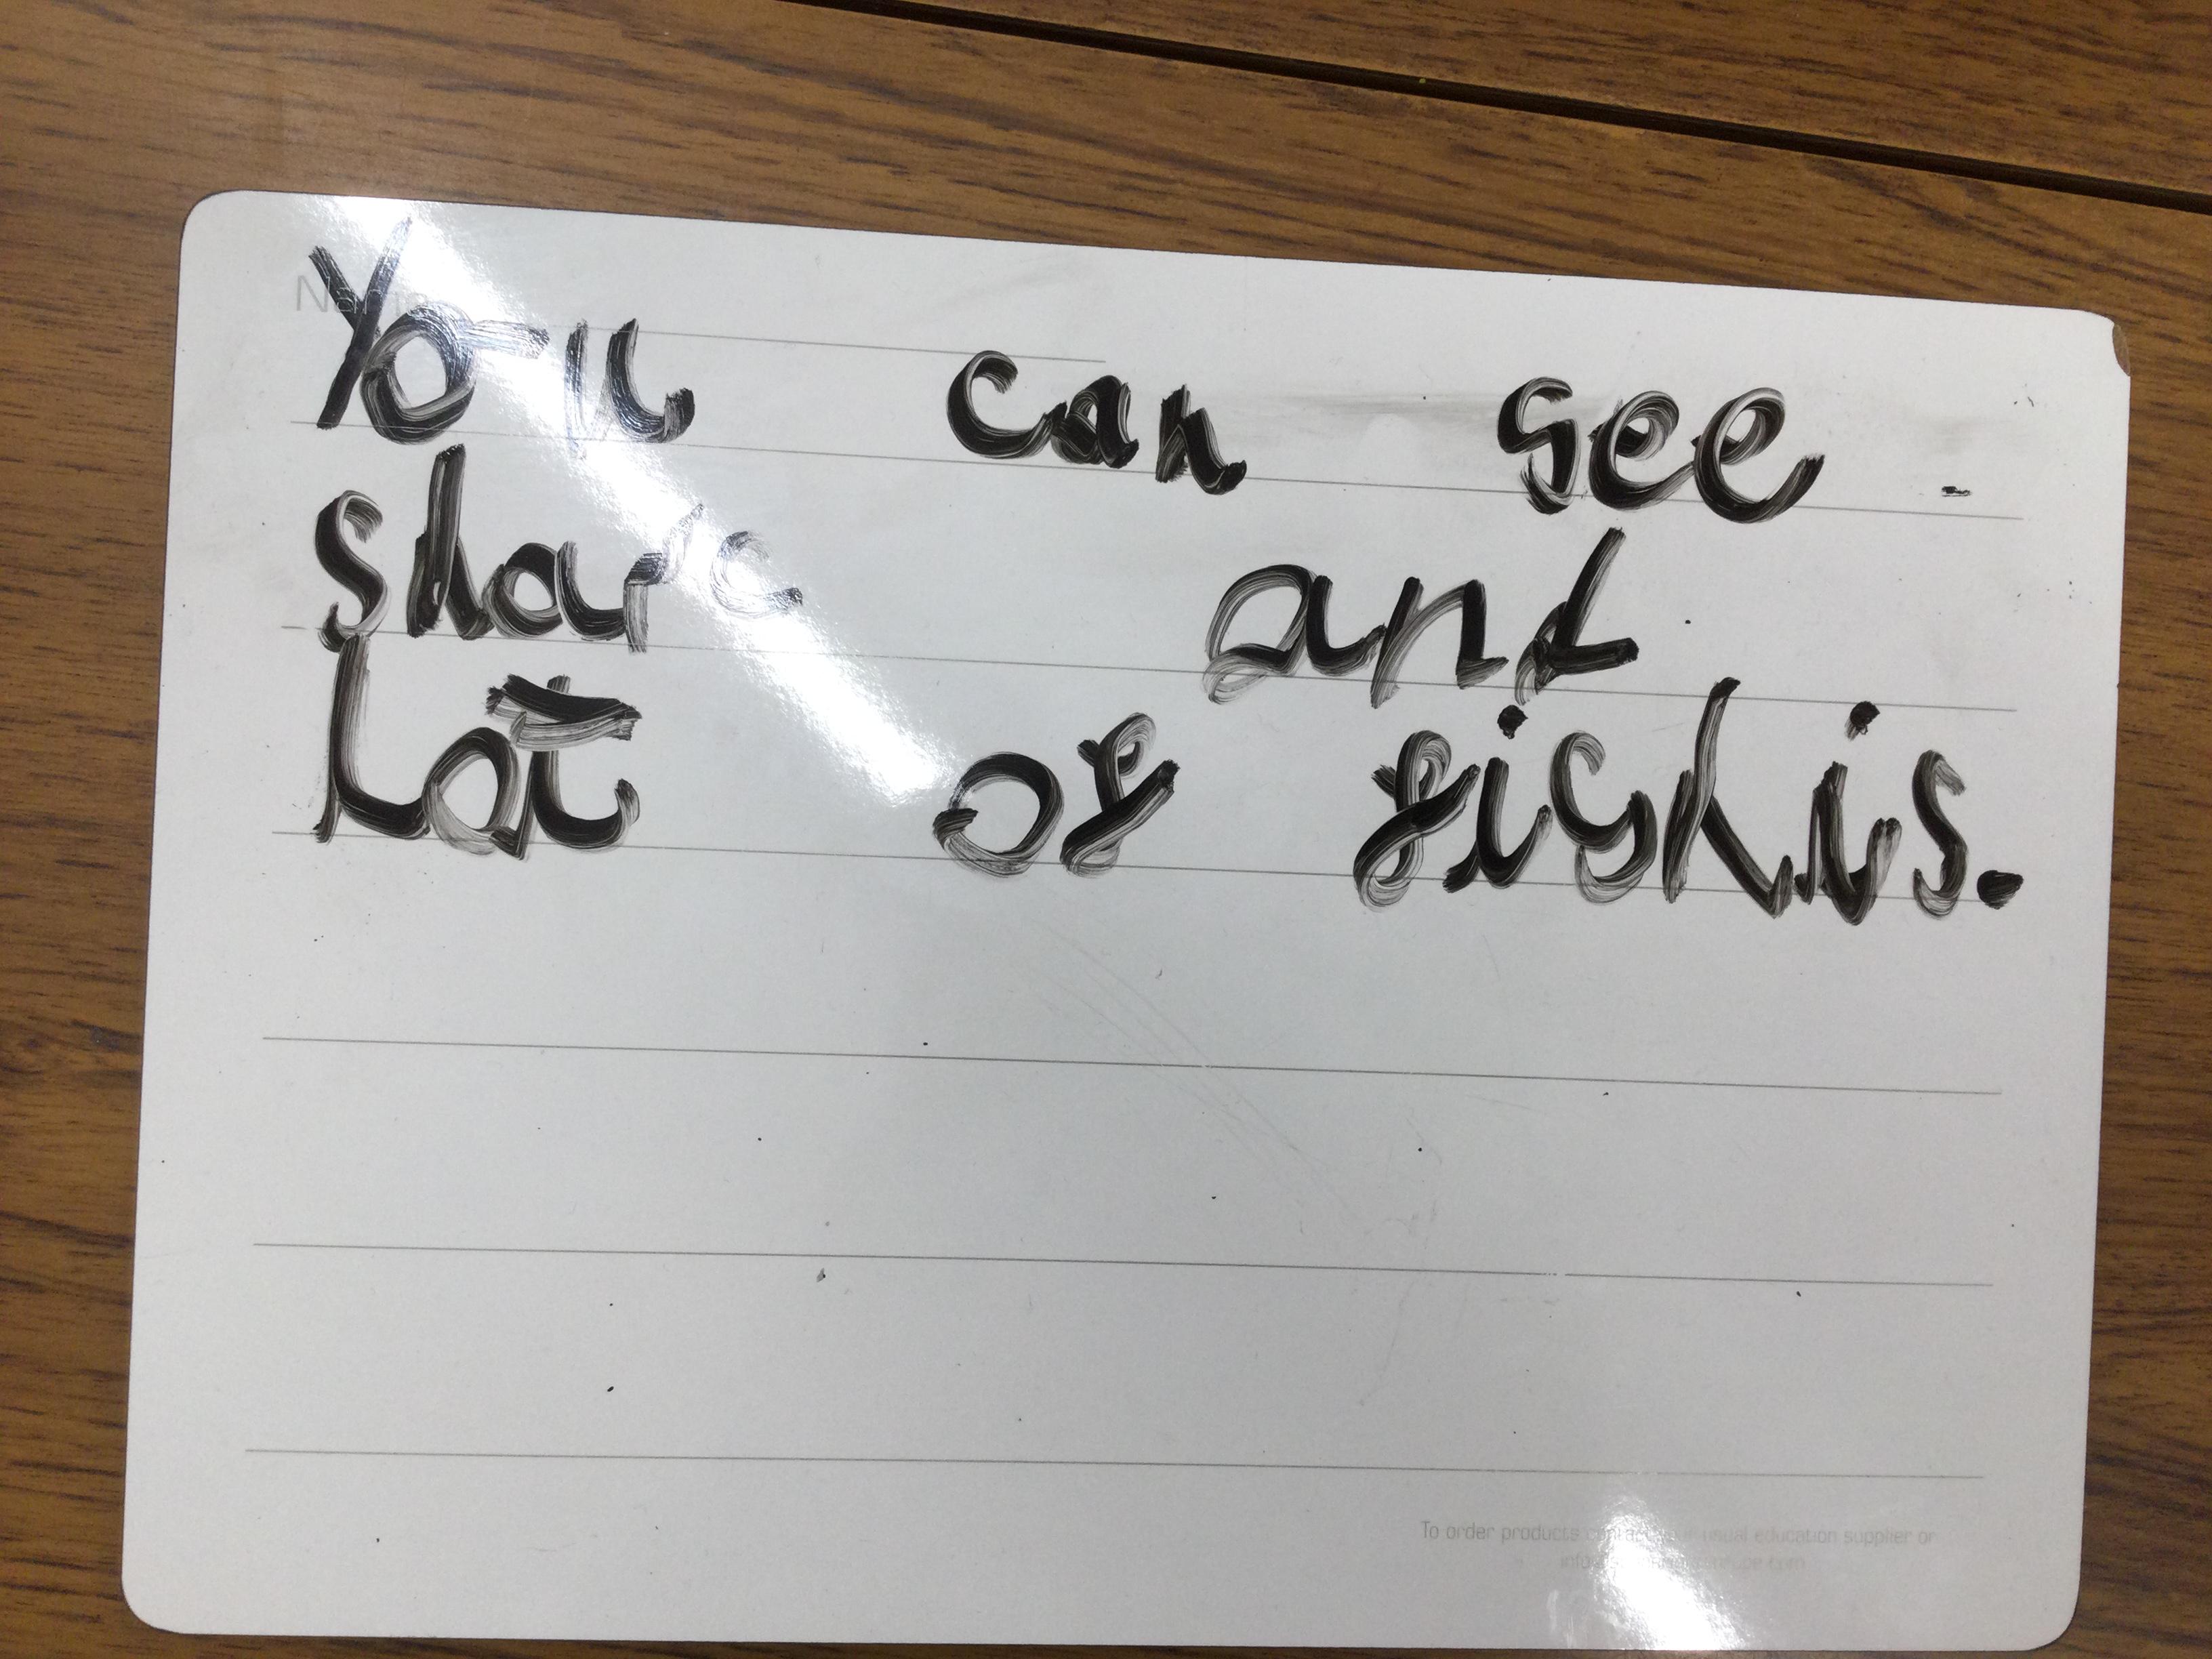 Name
You can see
sharc and
lot of fishis.
To order products contact your usual education supplier or